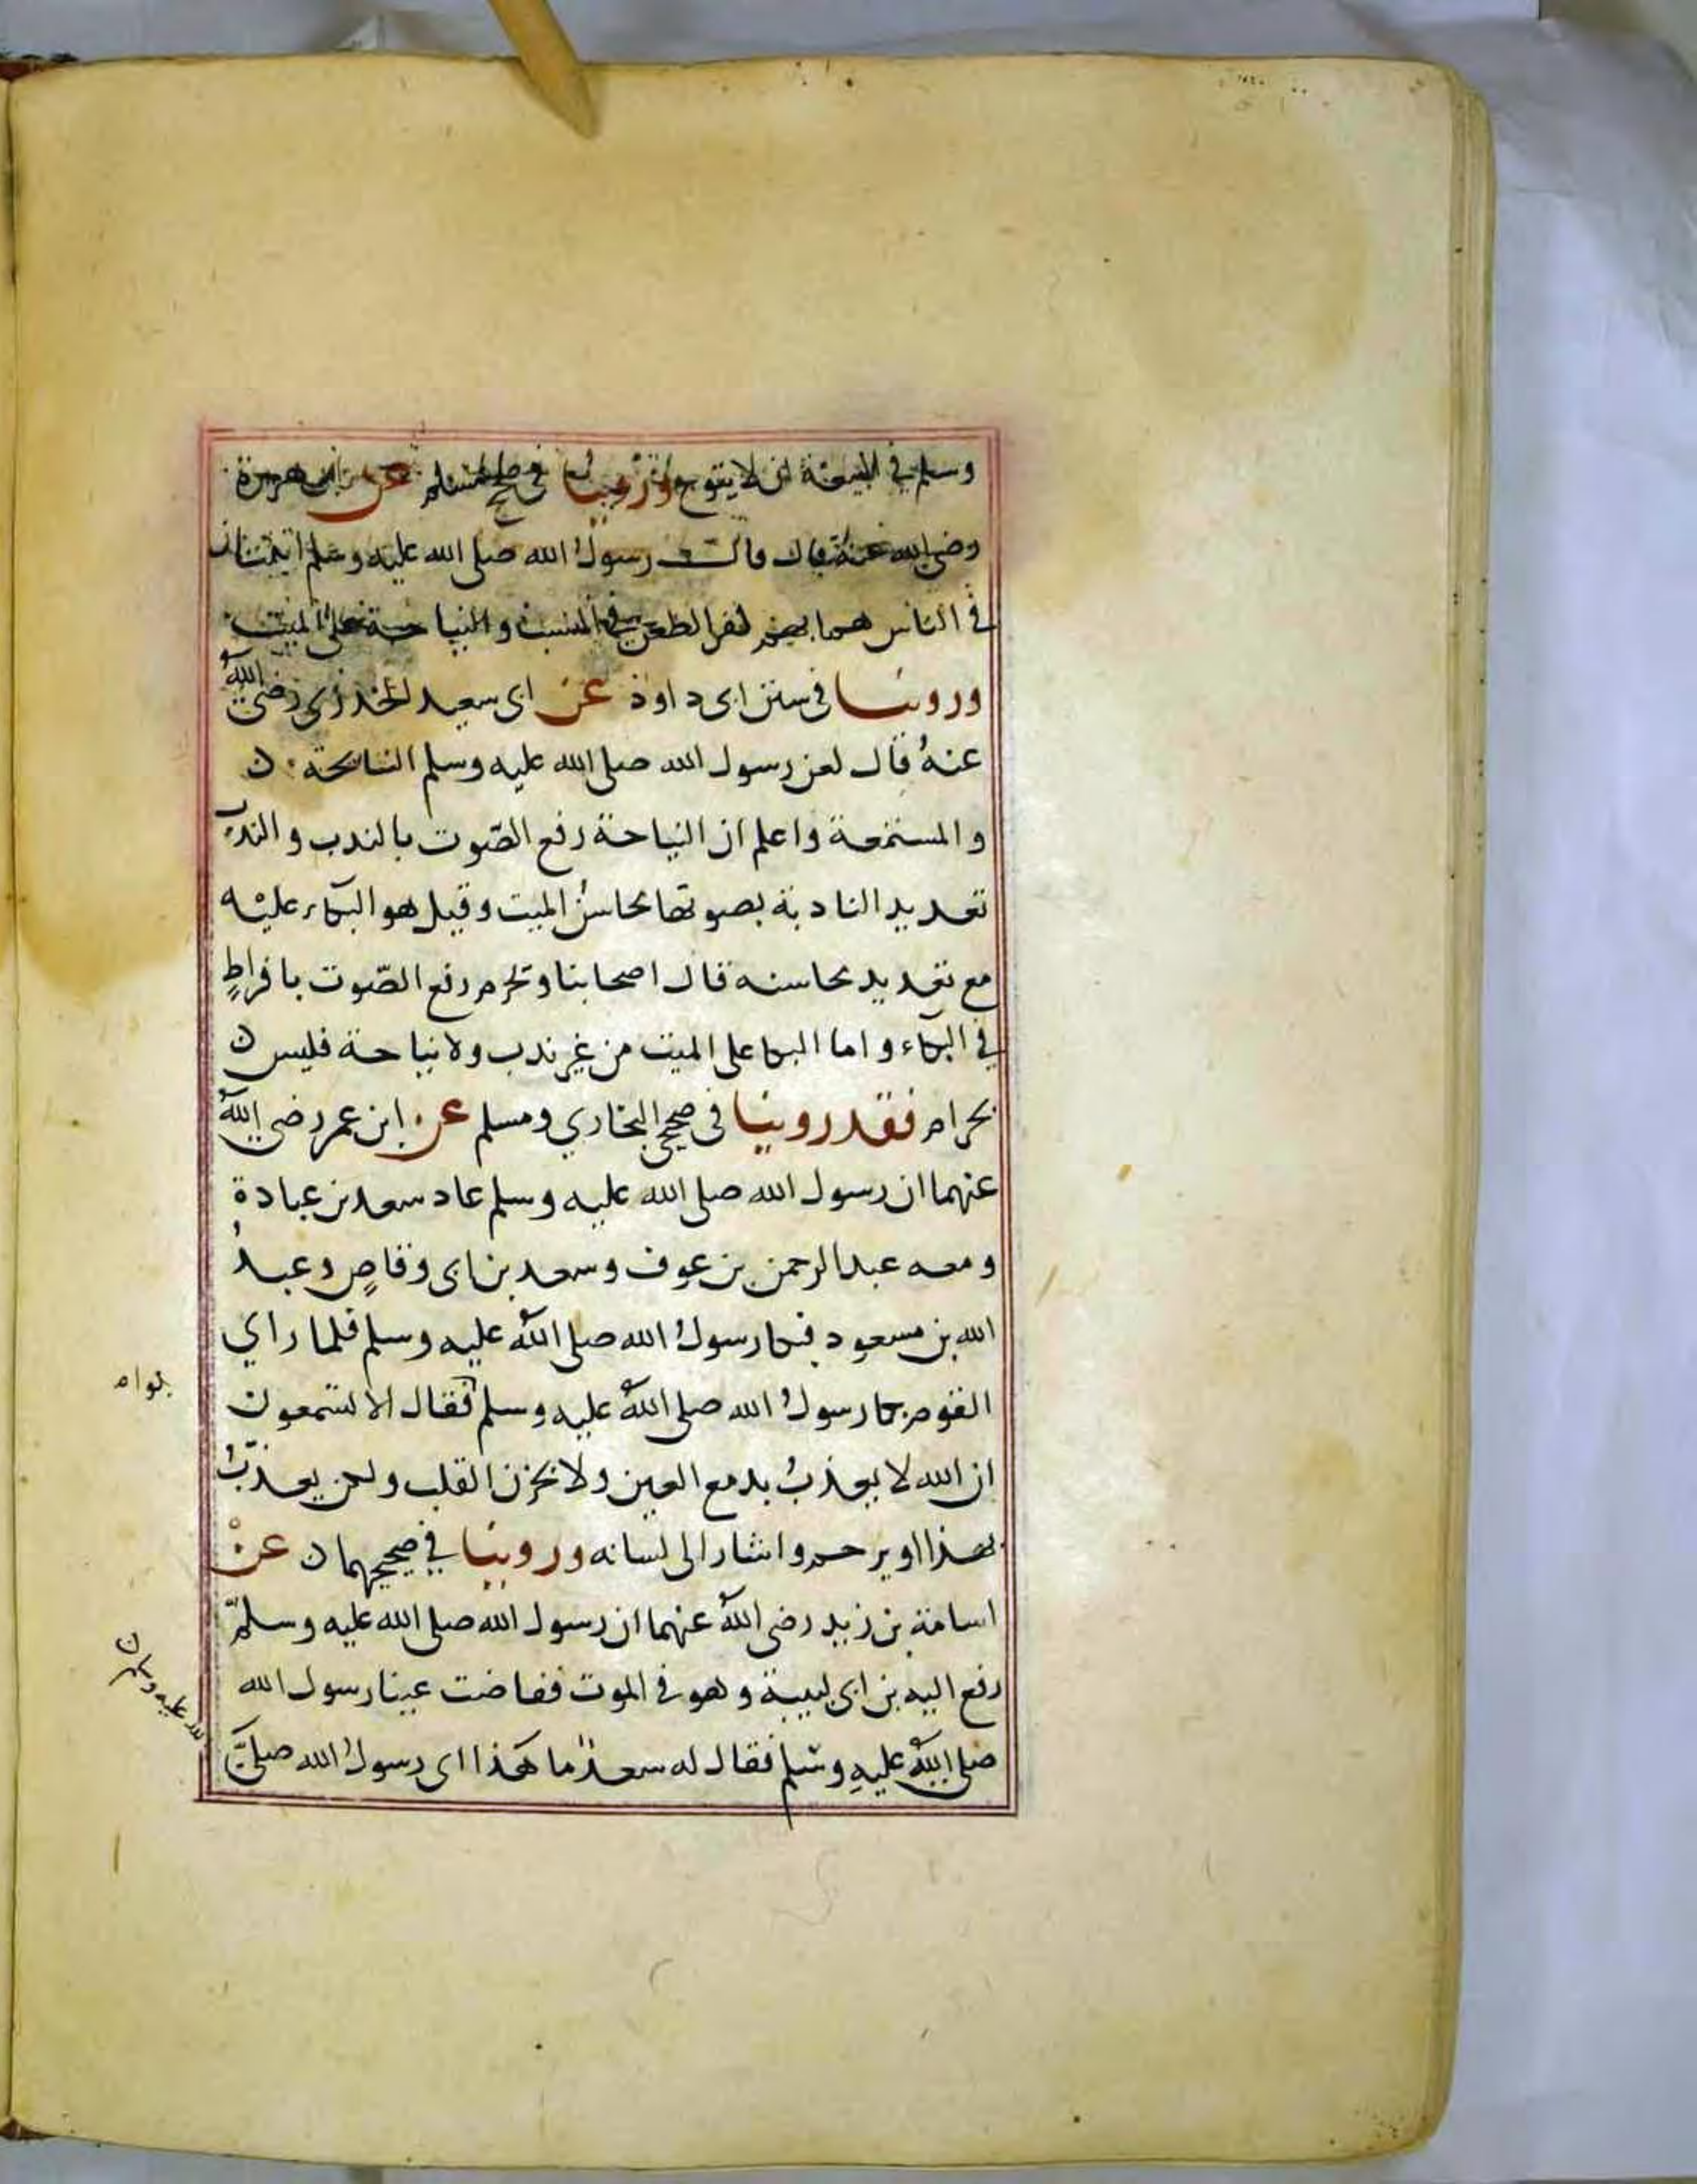 وسلم في البيعة ان لا ينوح وروينا في صحيح مسلم عن ابي هريرة
رضي الله عنه قال قال رسول الله صلى الله عليه وسلم اثنتان
في الناس هما بهم كفر الطعن في النسب والنياحة على الميت
وروينا في سنن ابى داود عن ابى سعيد الخدري رضي الله
عنهُ قال لعن رسول الله صلى الله عليه وسلم النائحة
والمستمعة واعلم ان النياحة رفع الصّوت بالندب والندب
تعديد النادبة بصوتها محاسن الميت وقيل هو البكاء عليه
مع تعديد محاسنه قال اصحابنا وتحرم رفع الصّوت بافراطٍ
في البكاء واما البكا على الميت من غير ندب ولا نياحة فليس
بحرام فقد روينا في صحيحي البخاري ومسلم عن ابن عمر رضي الله
عنهما ان رسول الله صلى الله عليه وسلم عاد سعد بن عبادة
ومعه عبد الرحمن بن عوف وسعد بن ابى وقاصٍ وعبدُ
الله بن مسعود فبكا رسولُ الله صلى اللهُ عليه وسلم فلما راي
القوم بكا رسولُ الله صلى اللهُ عليه وسلم فقال الا تسمعون
ان الله لا يعذبُ بدمع العين ولا بحزن القلب ولكن يعذّبُ
بهذا او يرحم واشار الى لسانه وروينا في صحيحيهما عنْ
اسامة بن زيد رضي اللهُ عنهما ان رسول الله صلى الله عليه وسلم
رفع اليه بن ابى لبيبة وهو في الموت ففاضت عينا رسول الله
صلى اللهُ عليهِ وسلم فقال له سعدٌ ما هذا اى رسولُ الله صلى
لله عليه وسلم